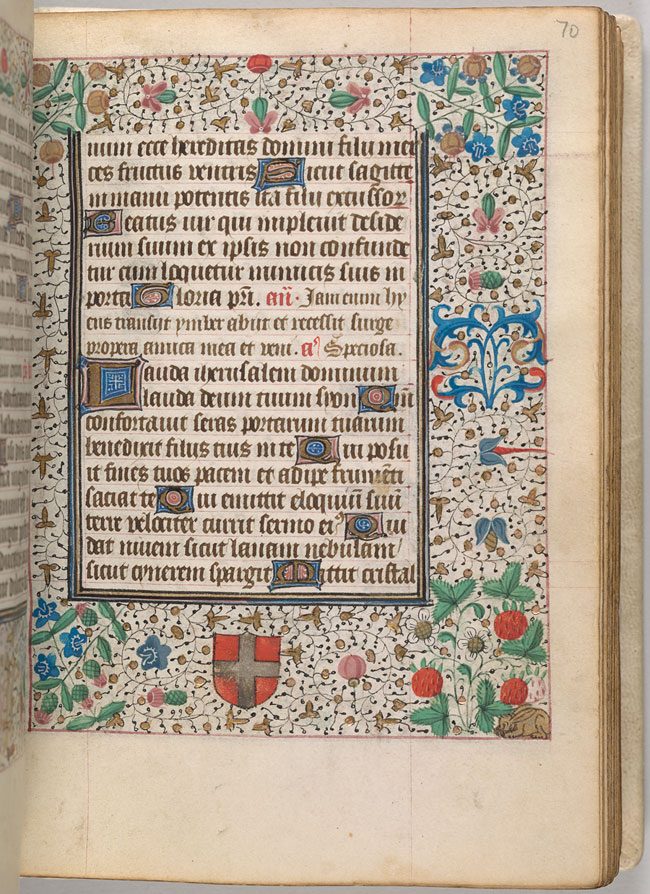 70
num ecce hereditas domini filii mer
ces fructus ventris Sicut sagitte
in manu potentis ita filii excussor
Beatus vir qui implevit deside
rium suum ex ipsis non confunde
tur cum loquetur inimicis suis in
porta Gloria pri. añ. Jam enim hy
ems transiit ymber abiit et recessit surge
propera amica mea et veni. a Speciosa.
Lauda iherusalem dominum
lauda deum tuum syon Qm̃
confortavit seras portarum tuarum
benedixit filiis tuis in te Qui posu
it fines tuos pacem et adipe frumẽti
saciat te Qui emittit eloquiũ suũ
terre velociter currit sermo eiꝰ Qui
dat nivem sicut lanam nebulam
sicut cynerem spargit Mittit cristal